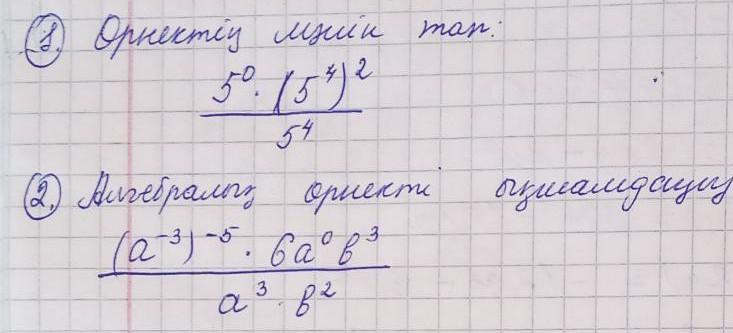 1. Орнектің мәнін тап:
5⁰ · (5⁴)²
5⁴
2. Алгебралық орнекті ықшамдаңыз
(a⁻³)⁻⁵ · 6a⁰ b³
a³ · b²